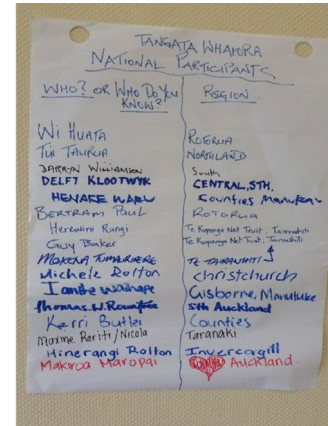 TANGATA WHAIORA
NATIONAL PARTICIPANTS
WHO? OR WHO DO YOU KNOW?! REGION.
Wi HUATA ROTORUA
Tui TAURUA NORTHLAND
DARRYN WILLIAMSON South
DELFT KLOOTWYK CENTRAL, STH.
HENARE Counties Manukau
BERTRAM PAUL ROTORUA
Herewini Rangi Te Kupenga Net Trust, Tairawhiti
Guy Baker Te Kupenga Net Trust, Tairawhiti
MAKERA TE TAIRAWHITI
Michele Rolton Christchurch
Gisborne,
Thomas.W. 5th Auckland
Kerri Butler Counties
Maxine Reriti/Nicola Taranaki
Hinerangi Rolton Invercagill
Makiroa Maropai Auckland.